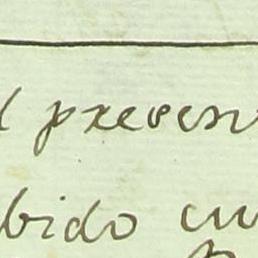 l presen
bido cu